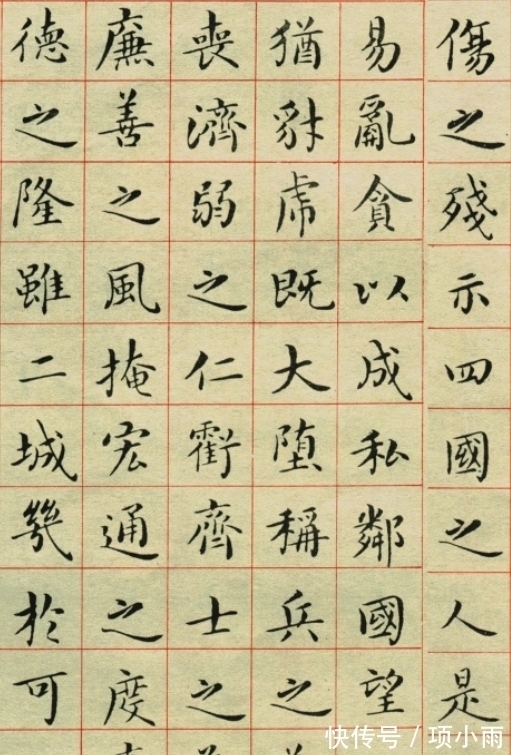 傷之殘示四國之人是
易亂貪以成私鄰國望
猶豺虎既大墮稱兵之
喪濟弱之仁虧齊士之
廉善之風掩宏通之度
德之隆雖二城幾於可
快传号 / 项小雨